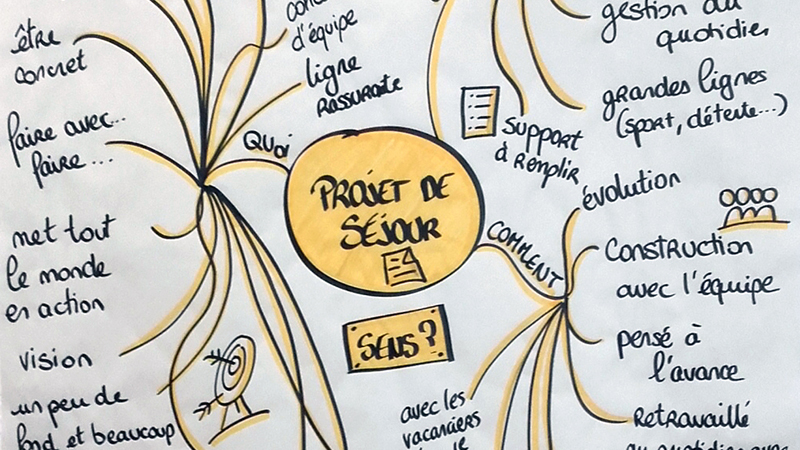 PROJET DE
SÉJOUR
SENS?
QUOI
d'équipe
ligne
RASSURANTE
être
concret
faire avec...
faire...
met tout
le monde
en action
vision
un peu de
fond et beaucoup
gestion du
quotidien
grandes lignes
(sport, détente...)
SUPPORT
à Remplir
COMMENT
évolution
CONSTRUCTION
avec l'équipe
pensé à
l'avance
RETRAVAILLÉ
avec les
vacanciers